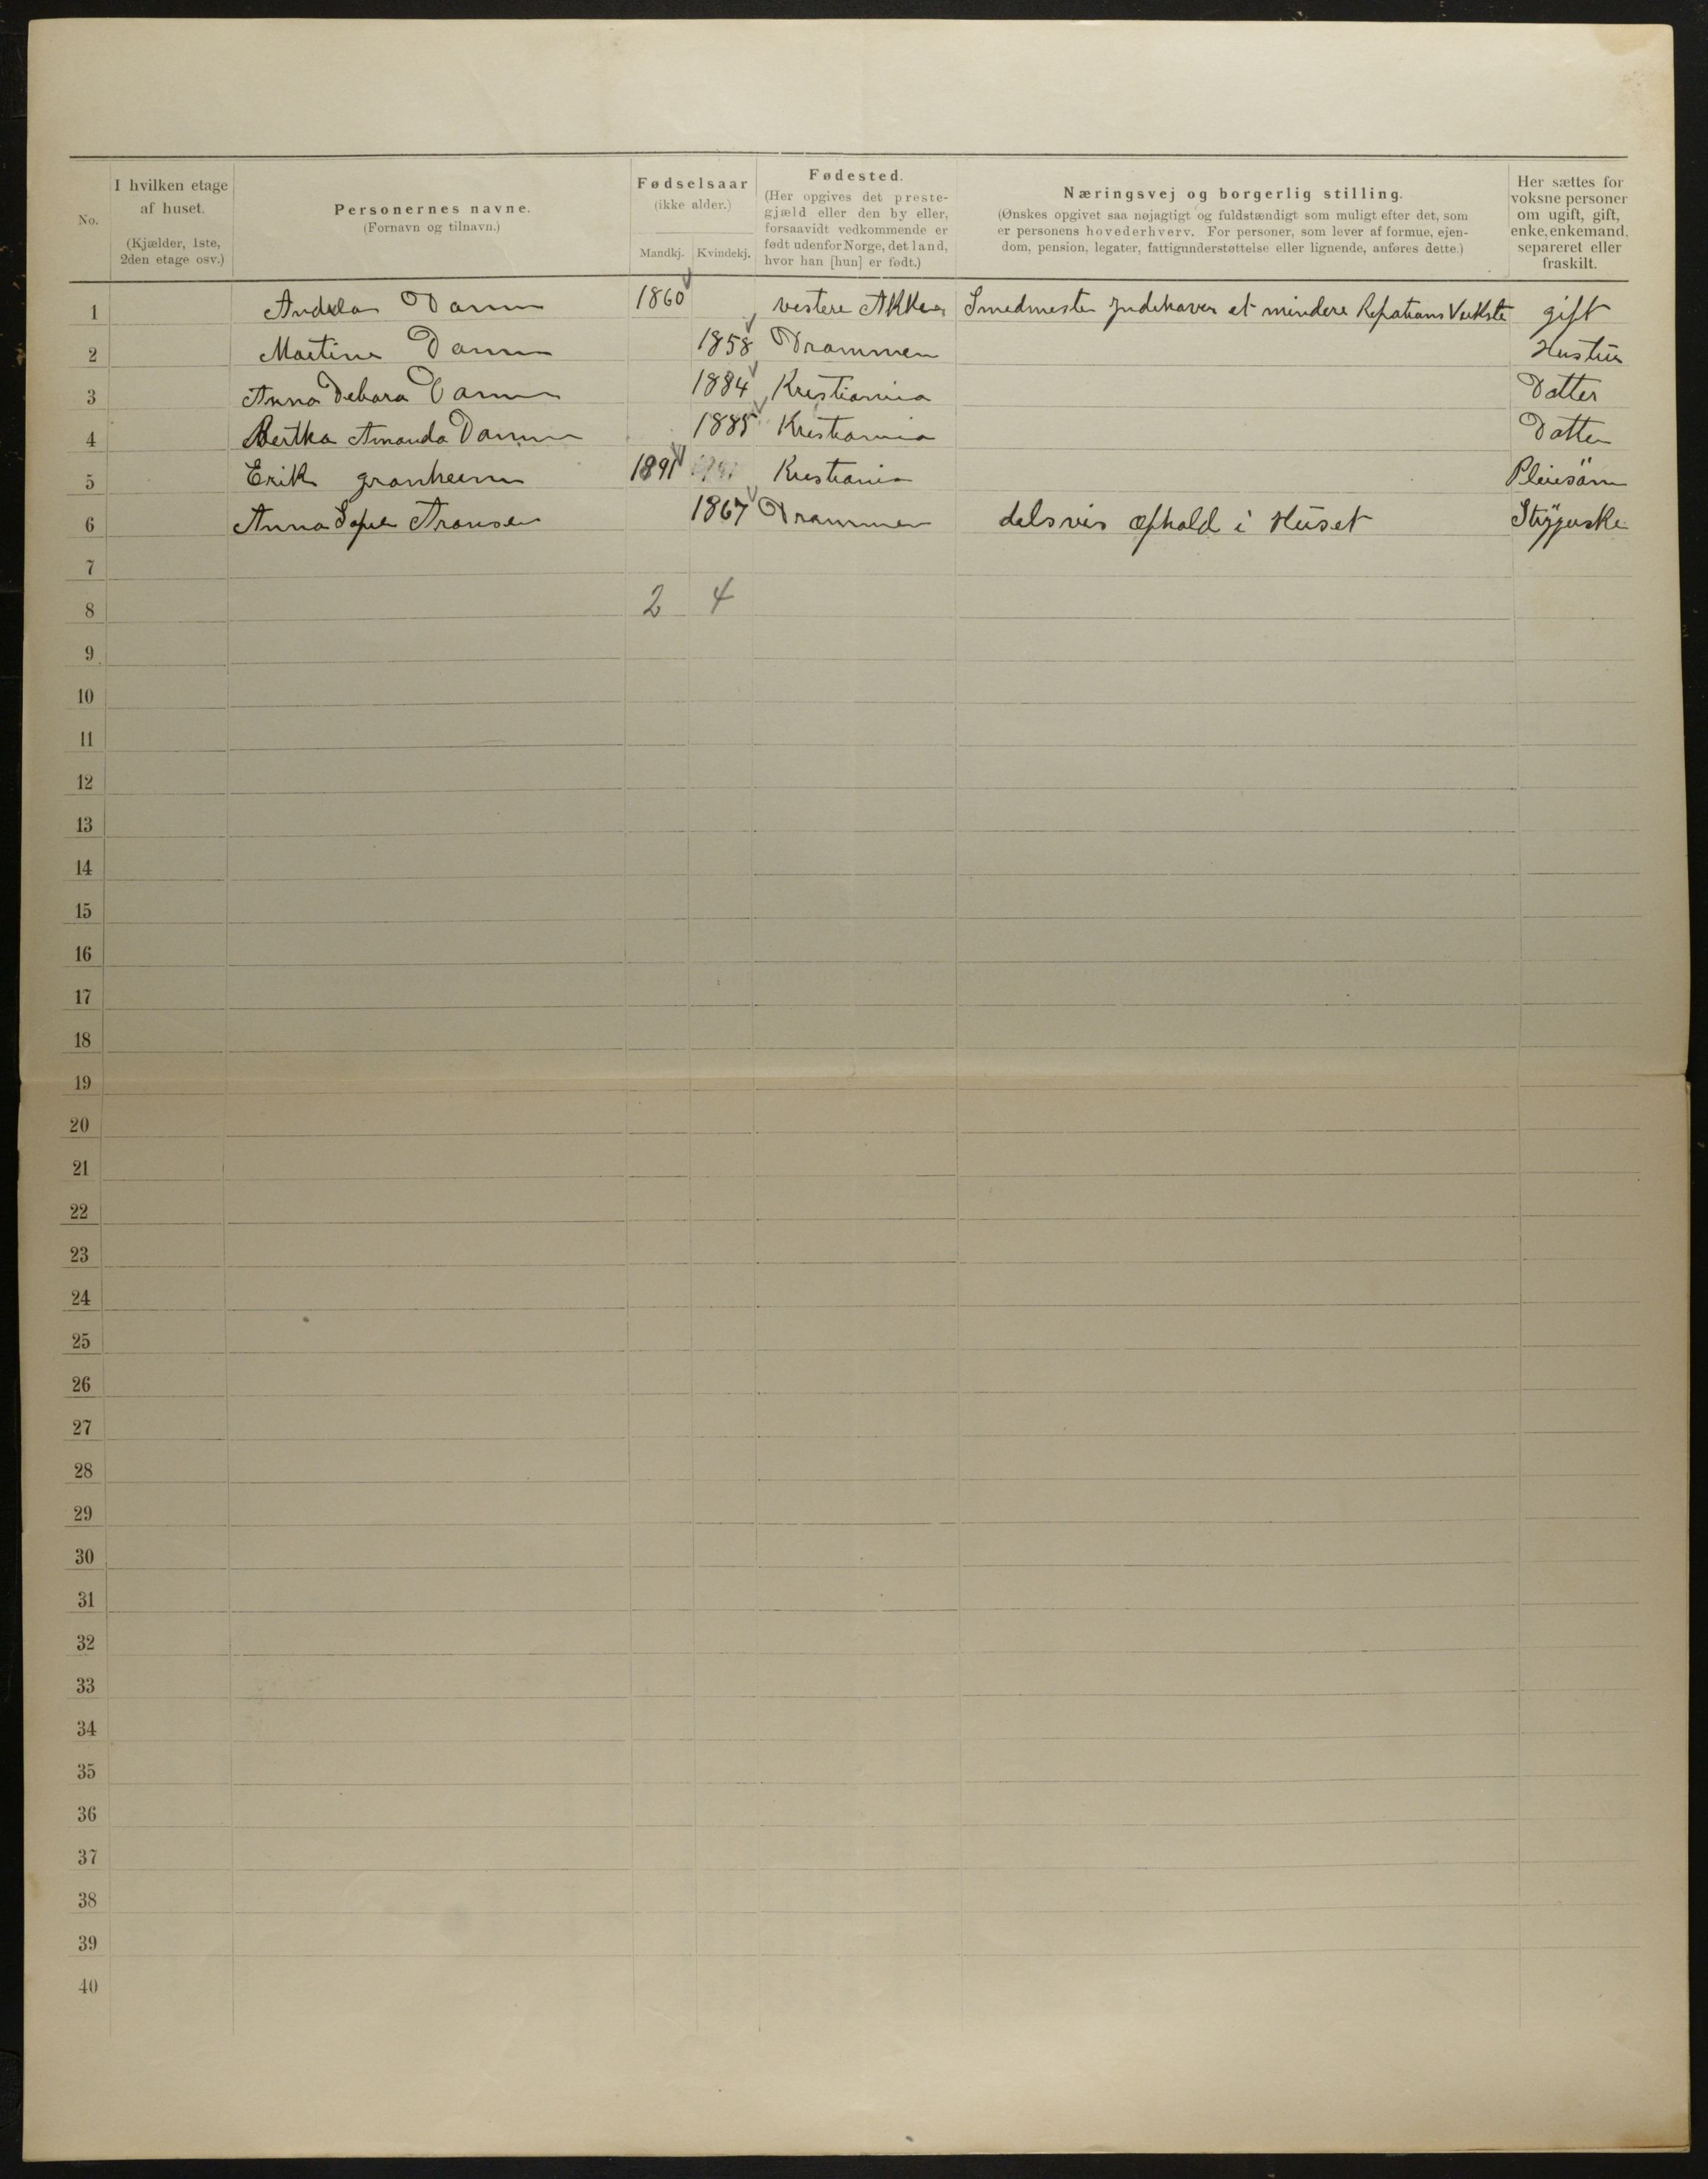 No.
I hvilken etage af huset. (Kjælder, 1ste, 2den etage osv.)
Personernes navne. (Fornavn og tilnavn.)
Fødselsaar (ikke alder.)
Mandkj. Kvindekj.
Fødested. (Her opgives det prestegjæld eller den by eller, forsaavidt vedkommende er født udenfor Norge, det land, hvor han [hun] er født.)
Næringsvej og borgerlig stilling. (Ønskes opgivet saa nøjagtigt og fuldstændigt som muligt efter det, som er personens hovederhverv. For personer, som lever af formue, ejendom, pension, legater, fattigunderstøttelse eller lignende, anføres dette.)
Her sættes for voksne personer om ugift, gift, enke, enkemand, separeret eller fraskilt.
1 Damm 1860 vestere Akker Smedmester Indehaver et mindere gift
2 Martine Damm 1858 Drammen Hustru
3 Anna Debora Damm 1884 Kristiania Datter
4 Bertha Amanda Damm 1885 Kristiania Datter
5 Erik granheim 1891 Kristiania Pleiesøn
6 Anna 1867 Drammen delsvis ophold i Huset
7
8 2 4
9
10
11
12
13
14
15
16
17
18
19
20
21
22
23
24
25
26
27
28
29
30
31
32
33
34
35
36
37
38
39
40